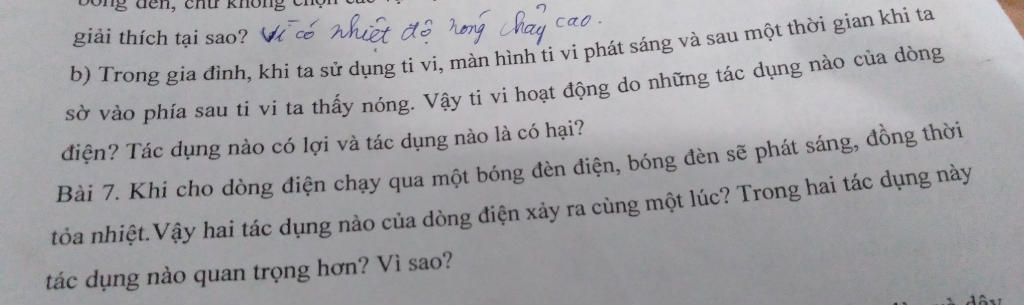 bóng đèn, chứ không chọn các
giải thích tại sao? Vì có nhiệt độ nóng chảy cao.
b) Trong gia đình, khi ta sử dụng ti vi, màn hình ti vi phát sáng và sau một thời gian khi ta
sờ vào phía sau ti vi ta thấy nóng. Vậy ti vi hoạt động do những tác dụng nào của dòng
điện? Tác dụng nào có lợi và tác dụng nào là có hại?
Bài 7. Khi cho dòng điện chạy qua một bóng đèn điện, bóng đèn sẽ phát sáng, đồng thời
tỏa nhiệt.Vậy hai tác dụng nào của dòng điện xảy ra cùng một lúc? Trong hai tác dụng này
tác dụng nào quan trọng hơn? Vì sao?
dây